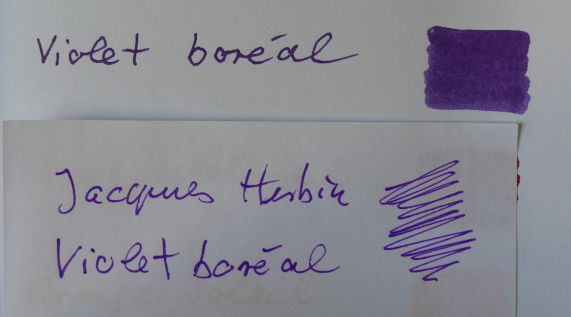 Violet boréal
Jacques Herbin
Violet boréal